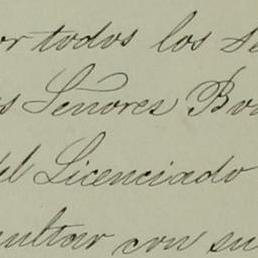 or todos los se
s Señores Bou
del Licenciado
sultar con su